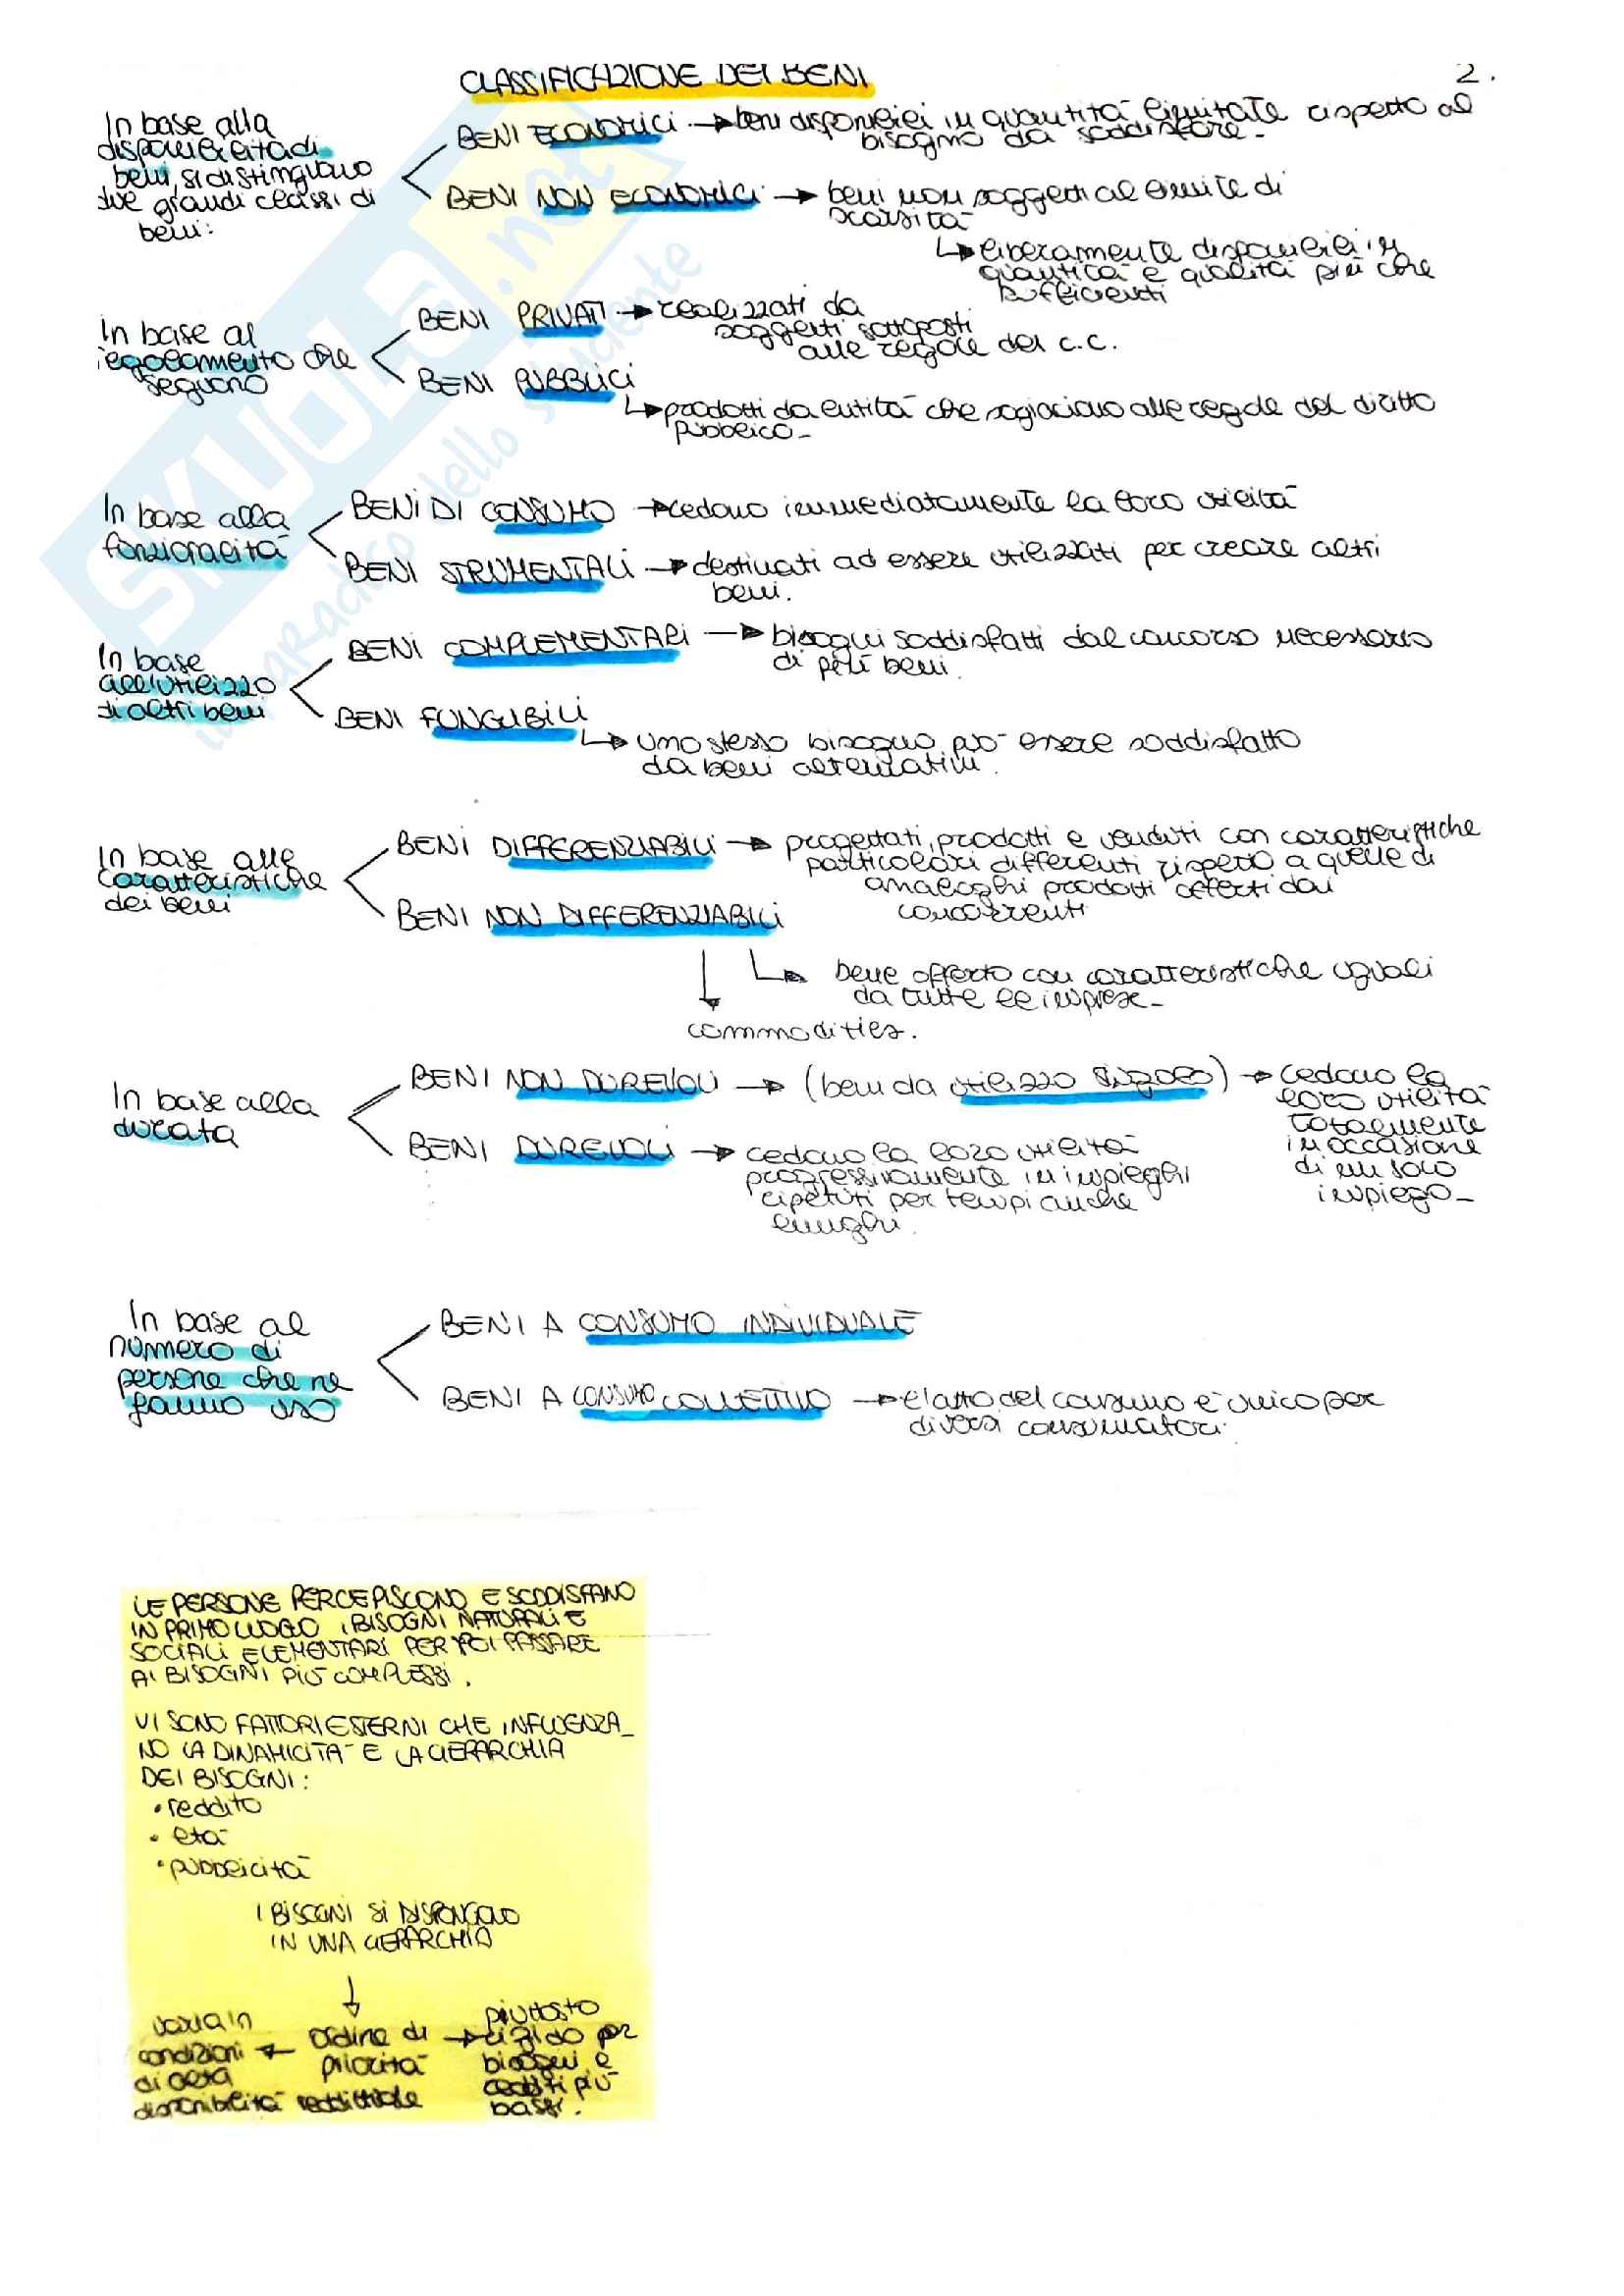 CLASSIFICAZIONE DEI BENI
2.
In base alla
disponibilità di
beni, si distinguono
due grandi classi di
beni:
BENI ECONOMICI → beni disponibili in quantità limitate rispetto al
bisogno da soddisfare-
BENI NON ECONOMICI → beni non soggetti al limite di
scarsità
↳ liberamente disponibili in
quantità e qualità più che
sufficienti
In base al
regolamento che
seguono
BENI PRIVATI → realizzati da
soggetti sottoposti
alle regole del c.c.
BENI PUBBLICI
↳ prodotti da entità che sogiaciono alle regole del diritto
pubblico-
In base alla
funzionalità
BENI DI CONSUMO → cedono immediatamente la loro utilità
BENI STRUMENTALI → destinati ad essere utilizzati per creare altri
beni.
In base
all'utilizzo
di altri beni
BENI COMPLEMENTARI → bisogni soddisfatti dal concorso necessario
di più beni.
BENI FUNGIBILI
↳ uno stesso bisogno può essere soddisfatto
da beni alternativi.
In base alle
caratteristiche
dei beni
BENI DIFFERENZIABILI → progettati, prodotti e venduti con caratteristiche
particolari differenti rispetto a quelle di
analoghi prodotti offerti dai
concorrenti
BENI NON DIFFERENZIABILI
↳ bene offerto con caratteristiche uguali
da tutte le imprese-
↓
commodities.
In base alla
durata
BENI NON DUREVOLI → (beni da utilizzo singolo) → cedono la
loro utilità
totalmente
in occasione
di un solo
impiego-
BENI DUREVOLI → cedono la loro utilità
progressivamente in impieghi
ripetuti per tempi anche
lunghi.
In base al
numero di
persone che ne
fanno uso
BENI A CONSUMO INDIVIDUALE
BENI A CONSUMO COLLETTIVO → l'atto del consumo è unico per
diversi consumatori.
LE PERSONE PERCEPISCONO E SODDISFANO
IN PRIMO LUOGO I BISOGNI NATURALI E
SOCIALI ELEMENTARI PER POI PASSARE
AI BISOGNI PIÙ COMPLESSI.
VI SONO FATTORI ESTERNI CHE INFLUENZA_
NO LA DINAMICITÀ E LA GERARCHIA
DEI BISOGNI:
• reddito
• età
• pubblicità
I BISOGNI SI DISPONGONO
IN UNA GERARCHIA
↓
varia in
condizioni
di certa
disponibilità reddituale
← ordine di
priorità
→ piuttosto
rigido per
bisogni e
redditi più
bassi.
SKUOLA.net
il paradiso dello studente